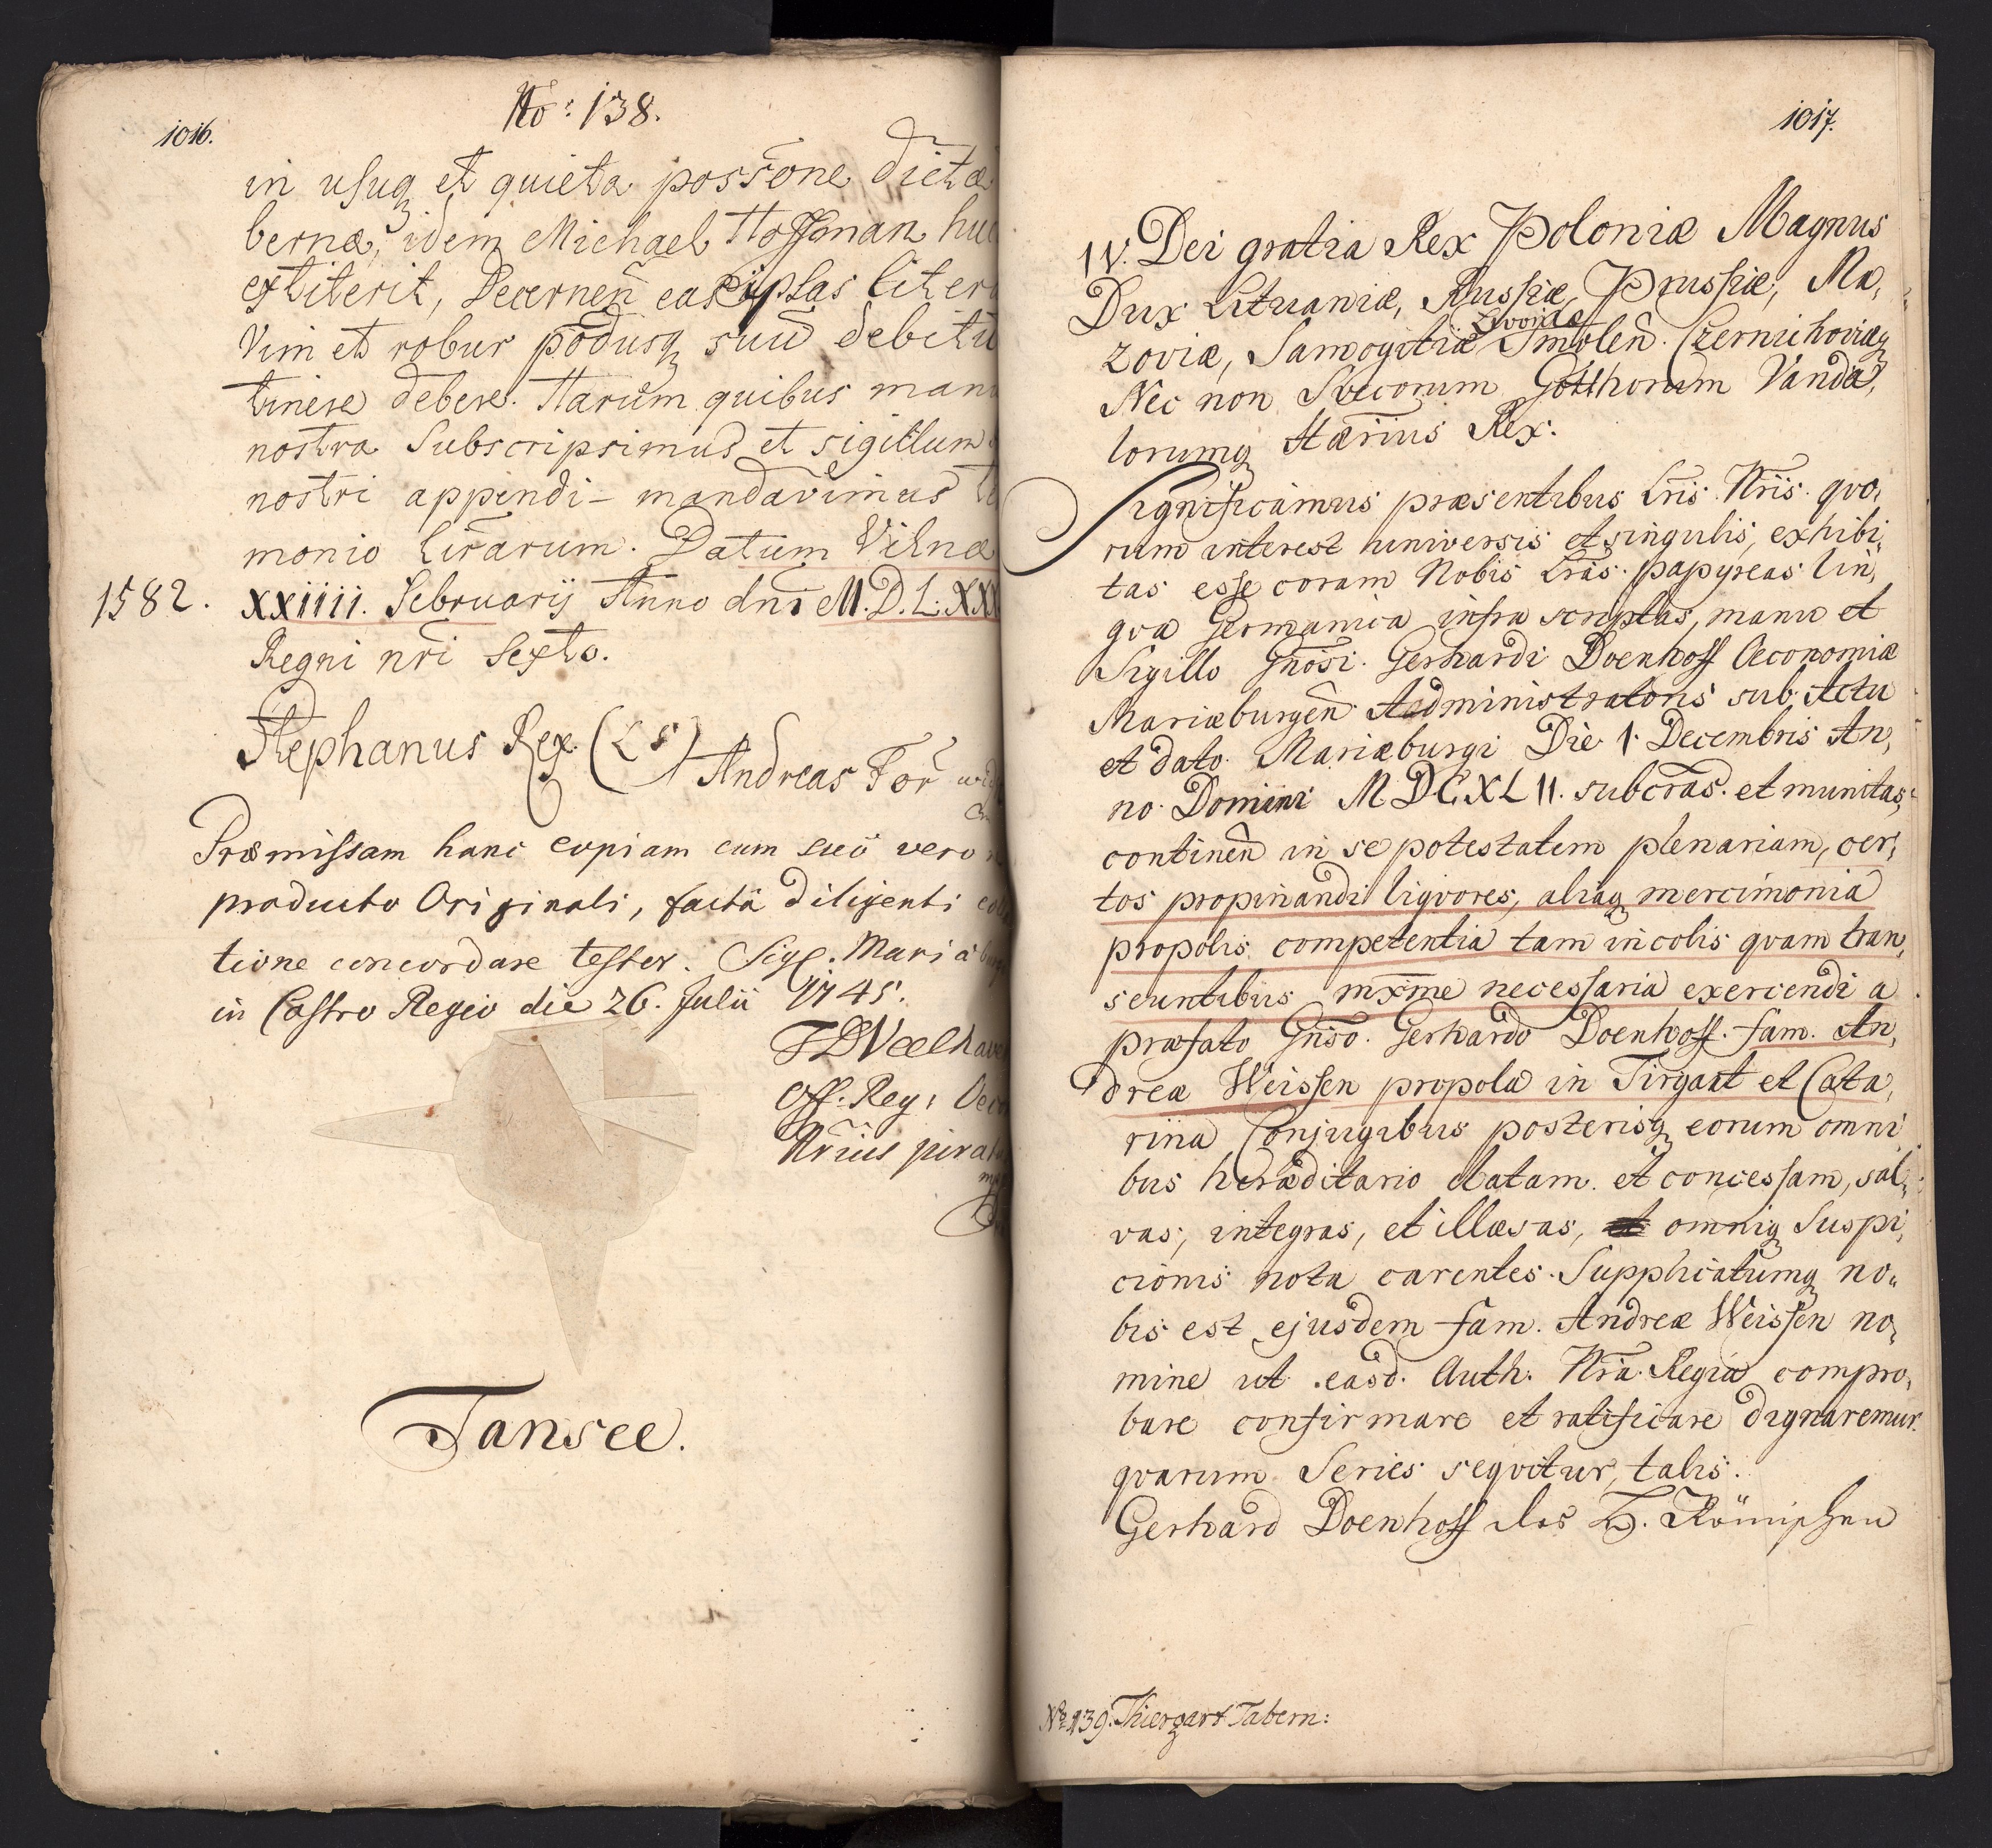 No: 138.
1016.
in usuq et quieta possone dictæ
bernæ, idem Michael Hoffman huc
extiterit, Decernen easipsas liter
Vim et robur podusq suu debitu
tinere debere. Harum quibus manu
nostra Subscripsimus et sigillum
nostri appendi mandavimus te
monio lirarum. Datum Vilnæ
1582. XXIIII. Februarij Anno dni M.D.L.XXX
Regni nri Sexto.
Stephanus Rex. (LS)
Andreas For
Præmissam hanc copiam cum suo vero
producto Originali, facta diligenti col
tione concordare testor. Sigl. Mariæburg
in Castro Regio die 26. Julii 1745.
Off. Reg: Oeco
Nrius jurat
Tansee.
1017.
IV. Dei gratia Rex Poloniæ Magnus
Dux Lituaniæ, Russiæ, Prussiæ, Ma,
Livoniæ
zoviæ, Samogitiæ Smolen. Czernichoviæq
Nec non Svecorum Gotthorum Vanda,
lorumq Hærius Rex.
Significamus præsentibus Lris Nris. qvo,
rum interest universis et singulis, exhibi,
tas esse coram Nobis Lras. papyreas lin,
gva Germanica infra scriptas, manu et
Sigillo Gnosi. Gerhardi Doenhoff Oeconomiæ
Mariæburgen Administratoris sub Actu
et dato Mariæburgi Die 1. Decembris An,
no. Domini MDCXLII. subcras. et munitas,
continen in se potestatem plenariam, cer,
tos propinandi liqvores, aliaq mercimonia
propolis competentia tam incolis qvam tran,
seuntibus mxme necessaria exercendi a
præfato Gnso. Gerhardo Doenhoff. fam. An,
dreæ Weissen propolæ in Tirgart et Cata,
rina Conjugibus posterisq eorum omni
bus heræditario datam et concessam, sal,
vas, integras, et illæsas, omniq Suspi,
cionis nota carentes. Supplicatumq no,,
bis est ejusdem fam. Andreæ Weissen no,
mine ut easd. Auth. Nra. Regia compro,
bare confirmare et ratificare dignaremur.
qvarum Series seqvitur talis.
Gerhard Doenhoff des H. Römischen
No 139. Thiergart Tabern: